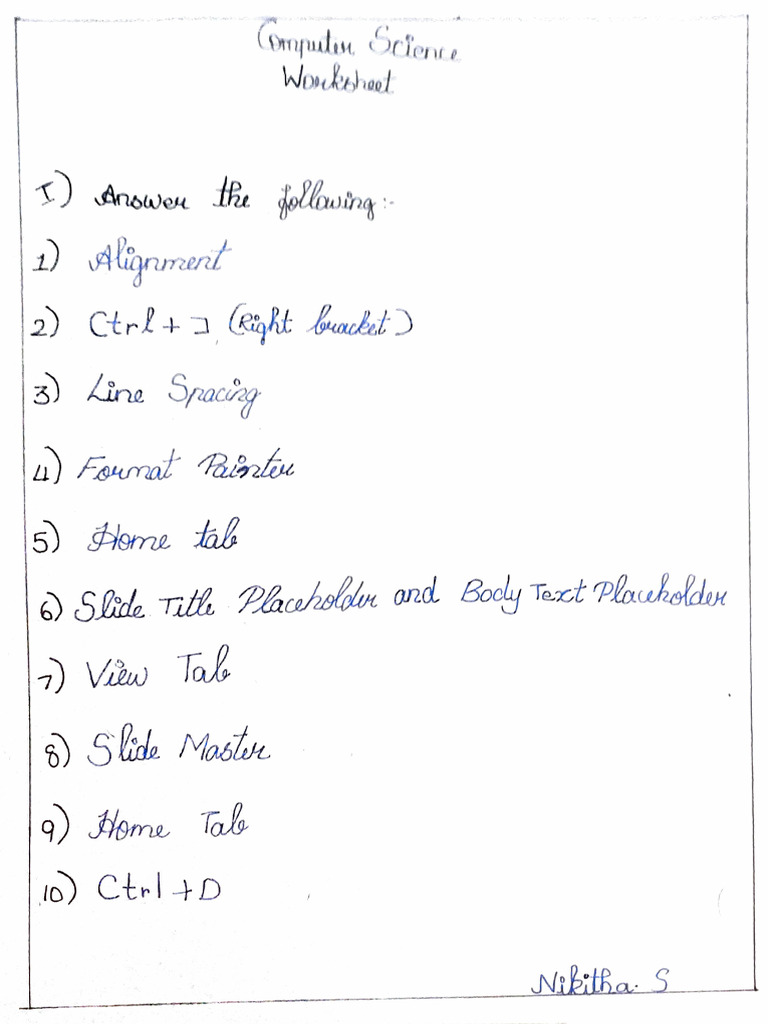 Computer Science
Worksheet
I) Answer the following:-
1) Alignment
2) Ctrl + ] (Right bracket)
3) Line Spacing
4) Format Painter
5) Home tab
6) Slide Title Placeholder and Body Text Placeholder
7) View Tab
8) Slide Master
9) Home Tab
10) Ctrl + D
Nikitha. S